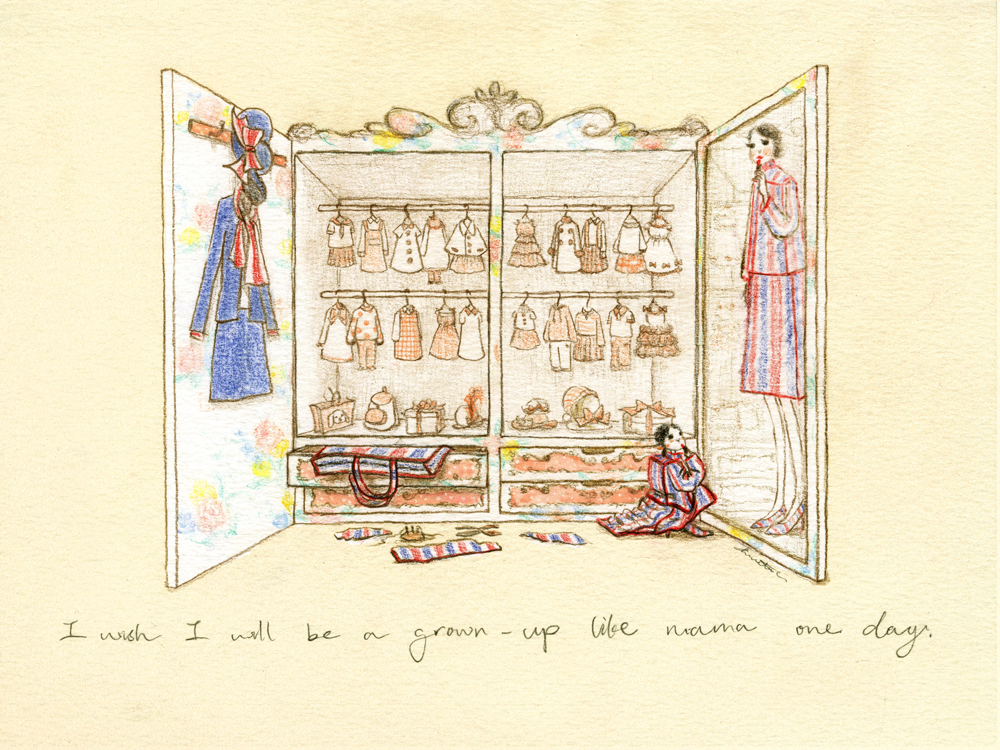 I wish I will be a grown-up like mama one day.